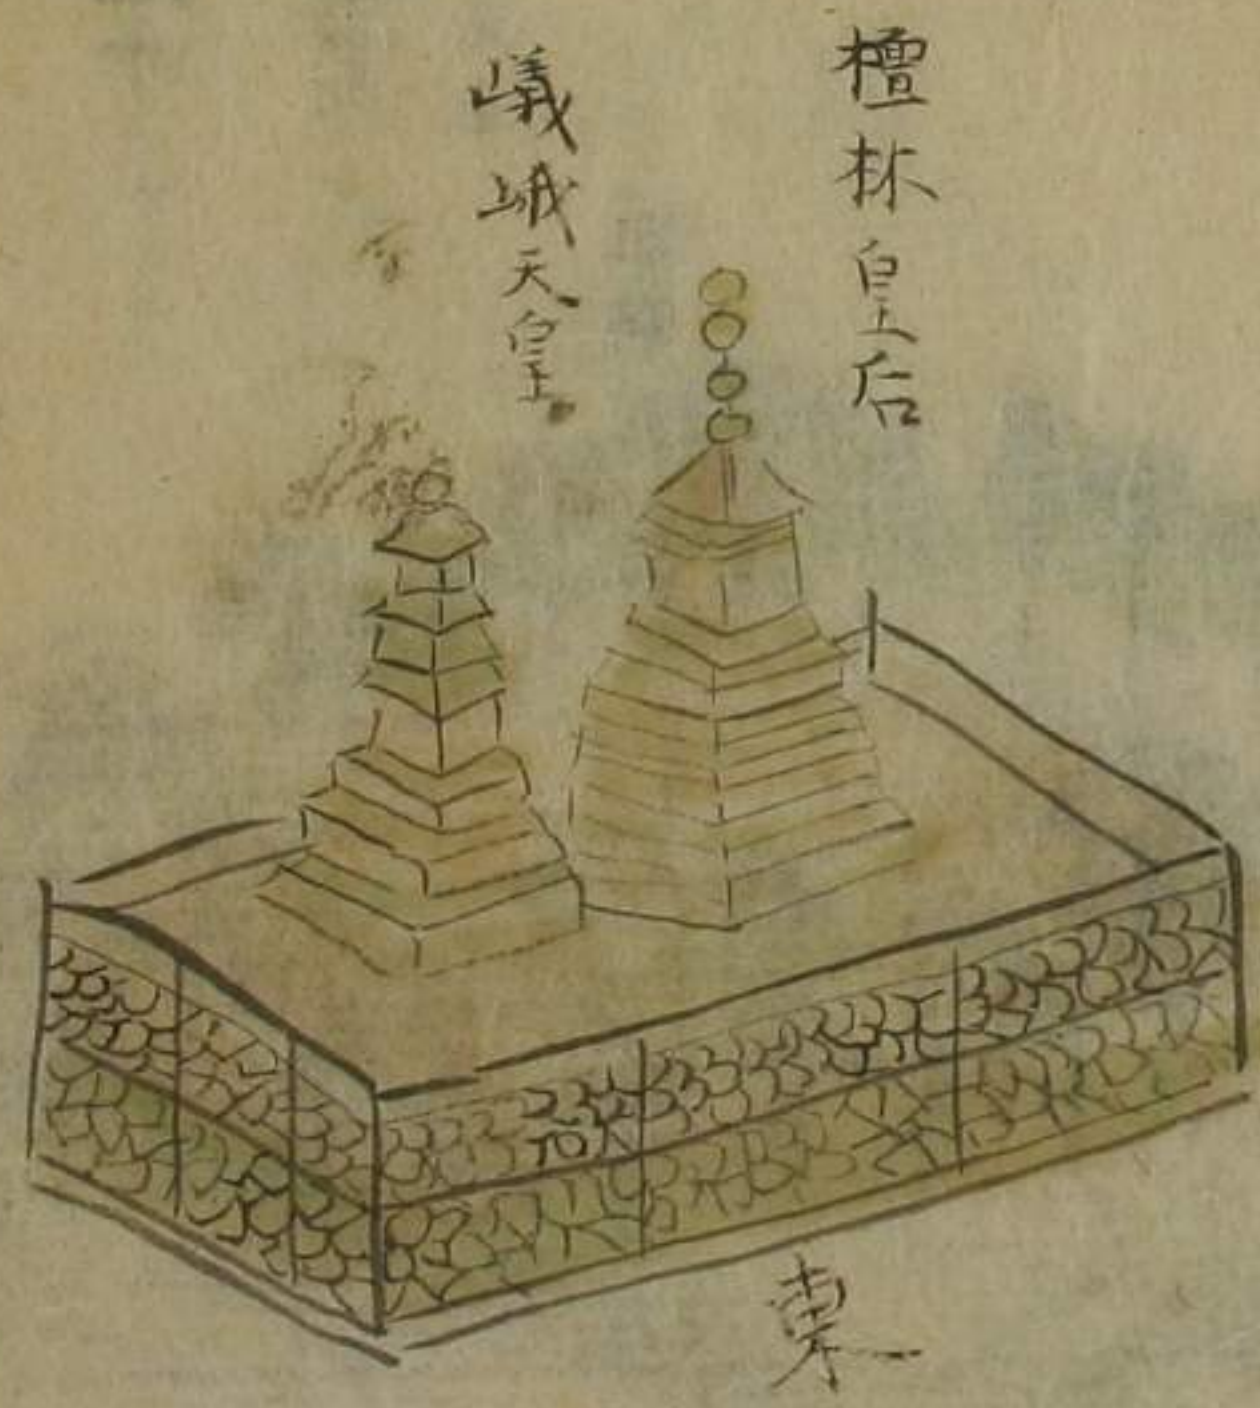 檀林皇后
嶬峨天皇
東